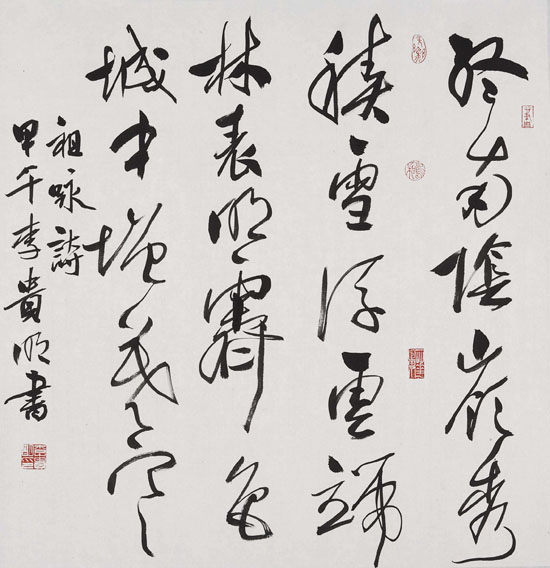 終南陰嶺秀
積雪浮雲端
林表明霽色
城中增暮寒
祖詠詩
甲午李貴明書